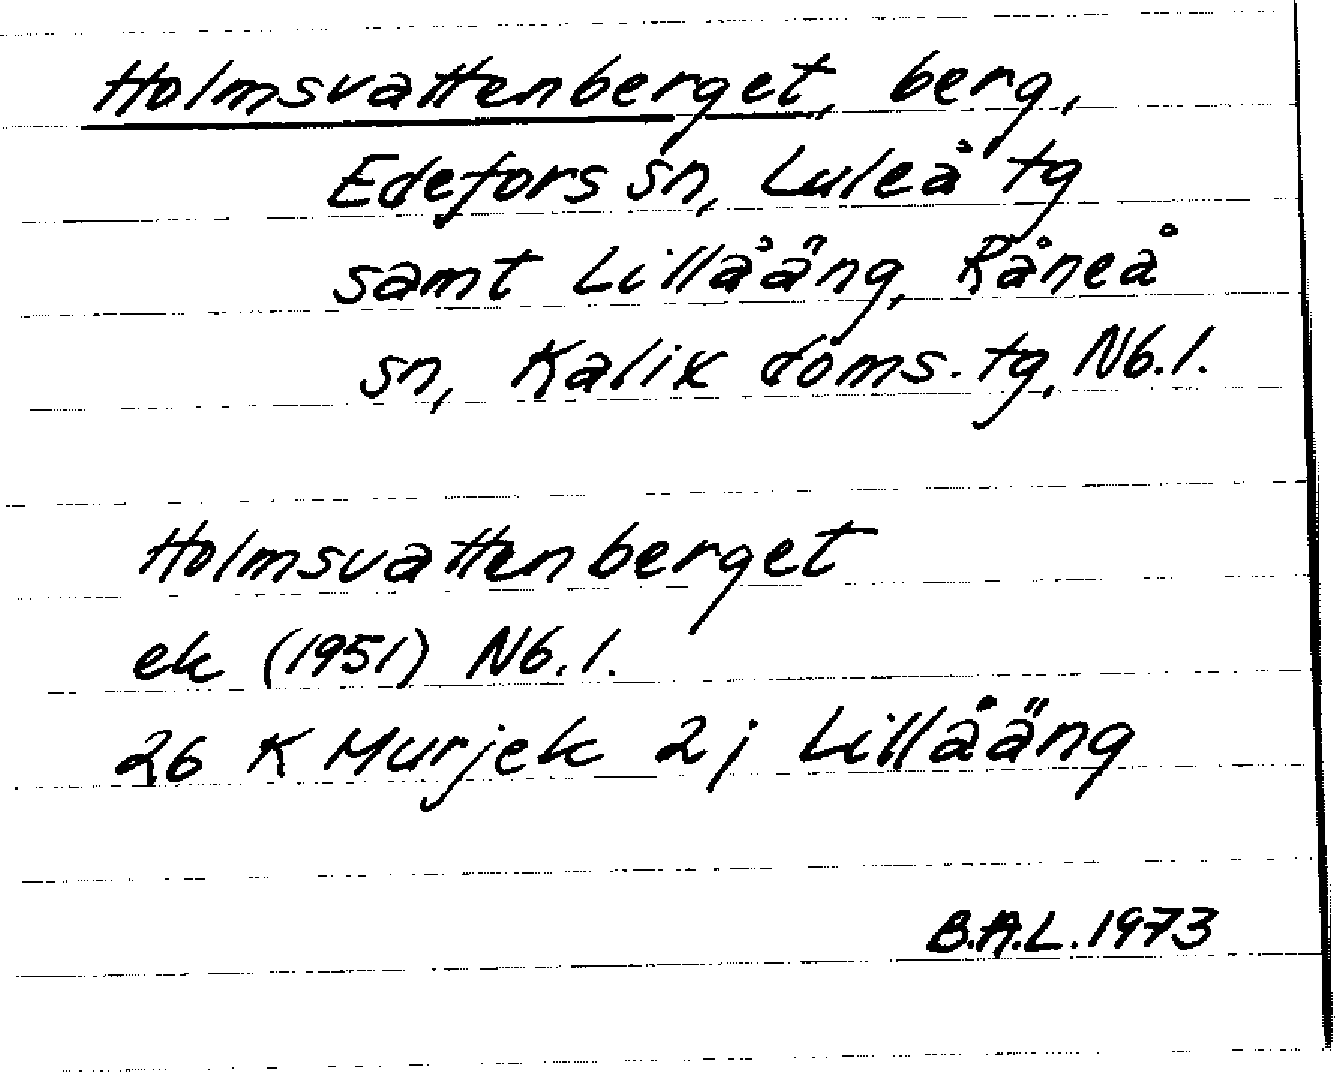 Holmsvattenberget, berg,
Edefors sn, Luleå tg
samt Lillååäng, Råneå
sn, Kalix doms. tg, Nb. l.
Holmsvattenberget
ek (1951) Nb. l.
26 K Murjek 2 j Lillååäng
B.A.L. 1973